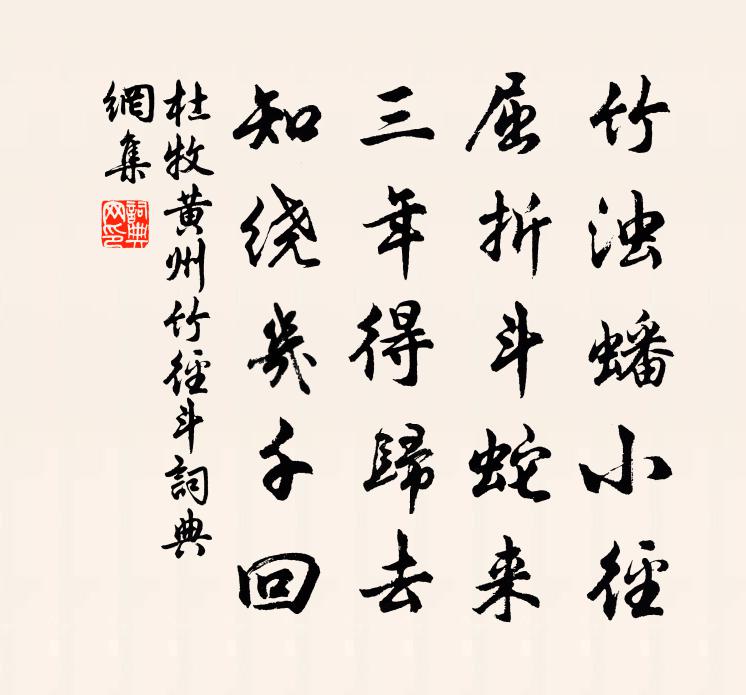 竹浊蟠小徑
屈折斗蛇来
三年得歸去
知绕幾千回
杜牧黄州竹徑斗詞典
網集
詞典
网印